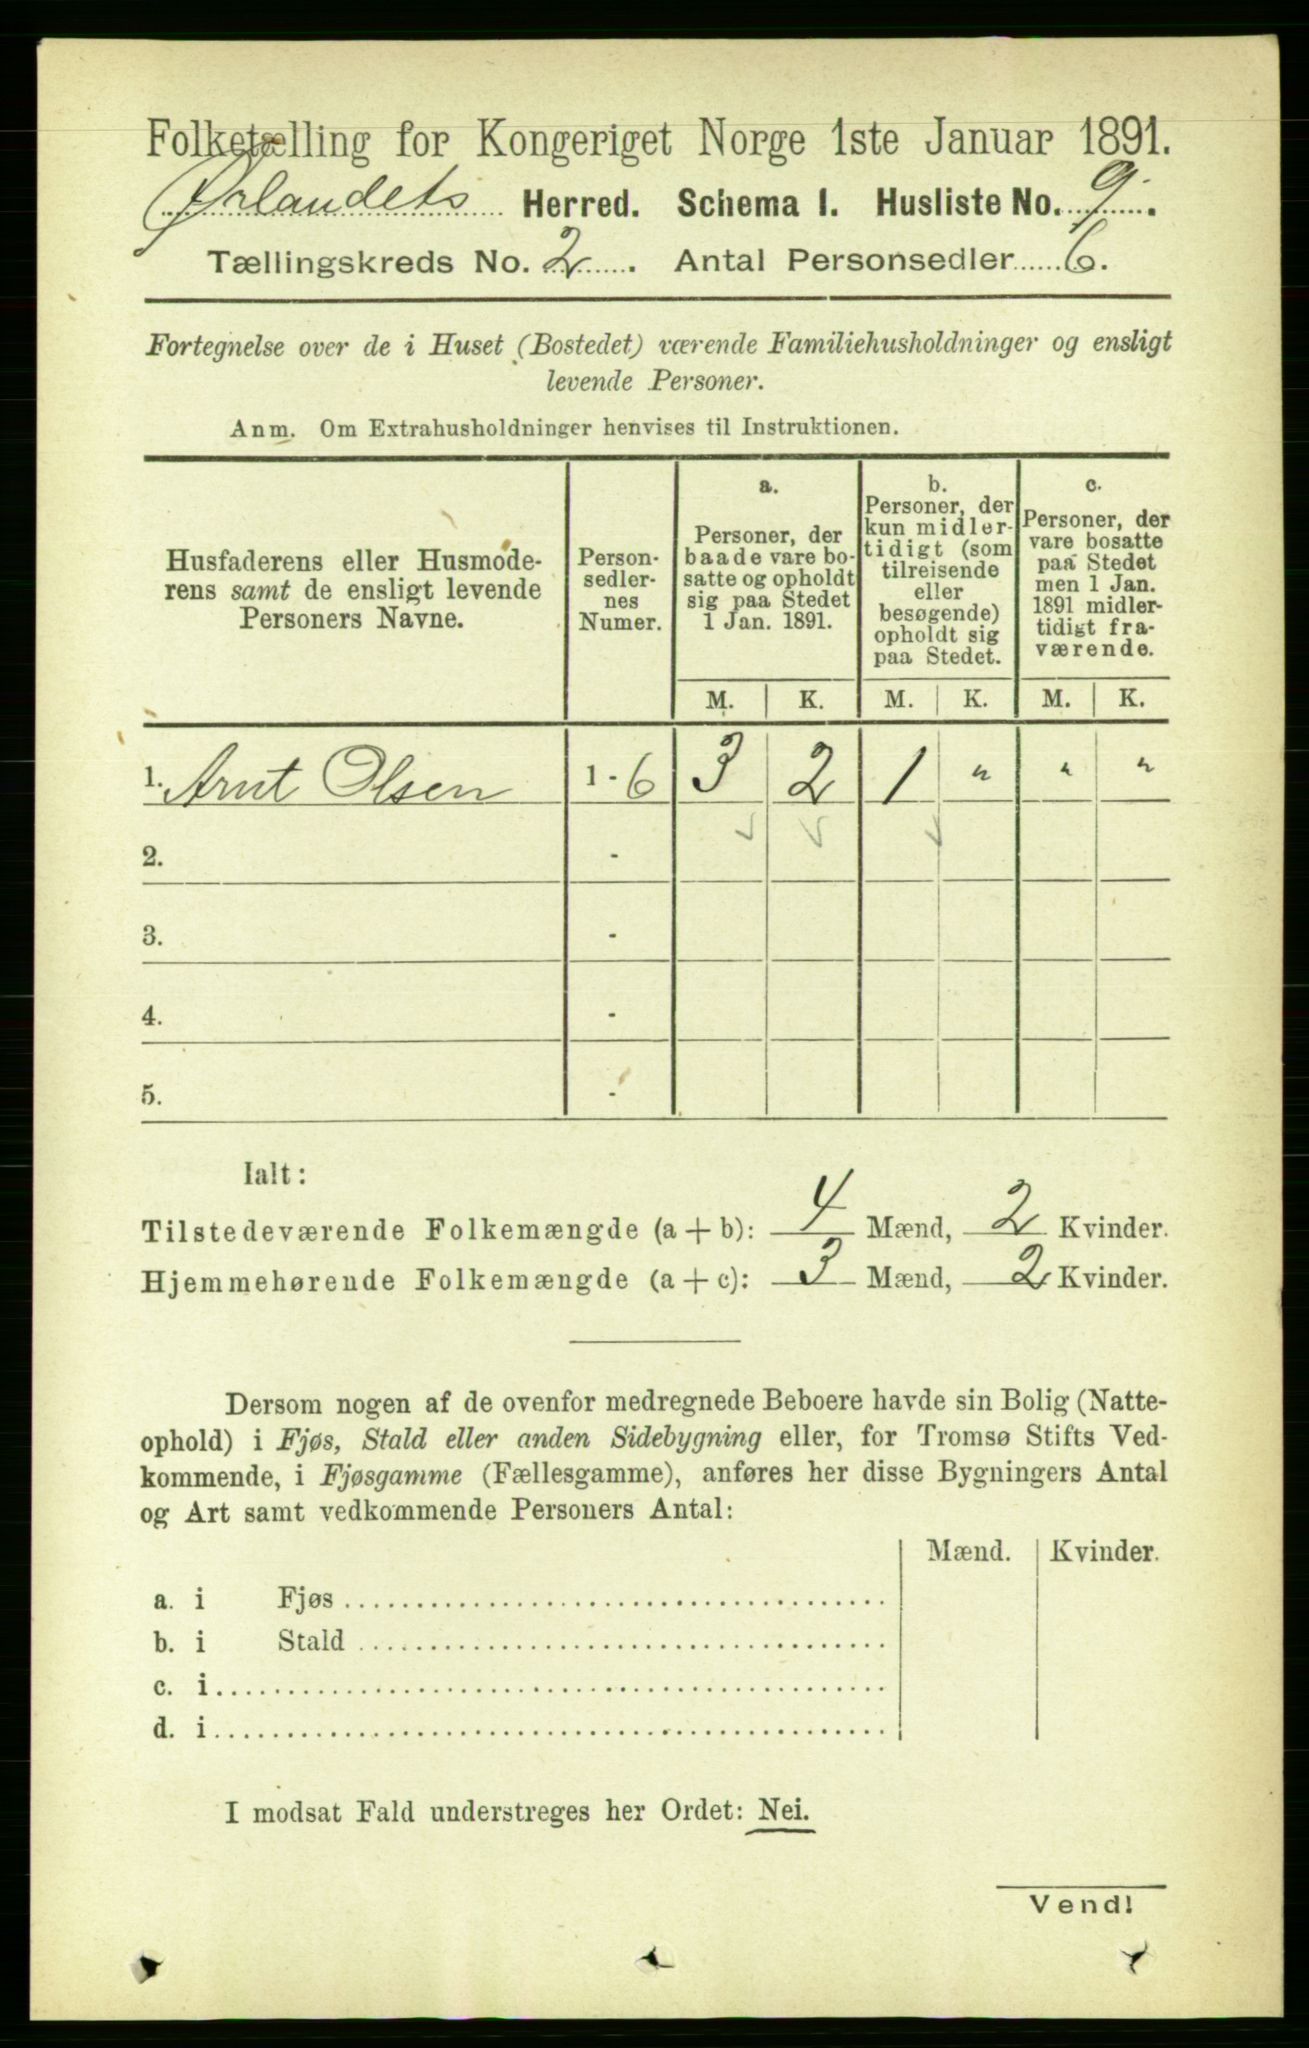 Folketælling for Kongeriget Norge 1ste Januar 1891.
Ørlandets Herred. Schema I. Husliste No. 9.
Tællingskreds No. 2. Antal Personsedler 6.
Fortegnelse over de i Huset (Bostedet) værende Familiehusholdninger og ensligt
levende Personer.
Anm. Om Extrahusholdninger henvises til Instruktionen.
Husfaderens eller Husmode-
rens samt de ensligt levende
Personers Navne.
Person-
sedler-
nes
Numer.
a.
Personer, der
baade vare bo-
satte og opholdt
sig paa Stedet
1 Jan. 1891.
b.
Personer, der
kun midler-
tidigt (som
tilreisende
eller
besøgende)
opholdt sig
paa Stedet.
c.
Personer, der
vare bosatte
paa Stedet
men 1 Jan.
1891 midler-
tidigt fra-
værende.
M. K. M. K. M. K.
1. Arnt Olsen 1 - 6 3 2 1 " " "
2. -
3. -
4. -
5. -
Ialt:
Tilstedeværende Folkemængde (a + b): 4 Mænd, 2 Kvinder.
Hjemmehørende Folkemængde (a + c): 3 Mænd, 2 Kvinder.
Dersom nogen af de ovenfor medregnede Beboere havde sin Bolig (Natte-
ophold) i Fjøs, Stald eller anden Sidebygning eller, for Tromsø Stifts Ved-
kommende, i Fjøsgamme (Fællesgamme), anføres her disse Bygningers Antal
og Art samt vedkommende Personers Antal:
Mænd. Kvinder.
a. i Fjøs
b. i Stald
c. i
d. i
I modsat Fald understreges her Ordet: Nei.
Vend!